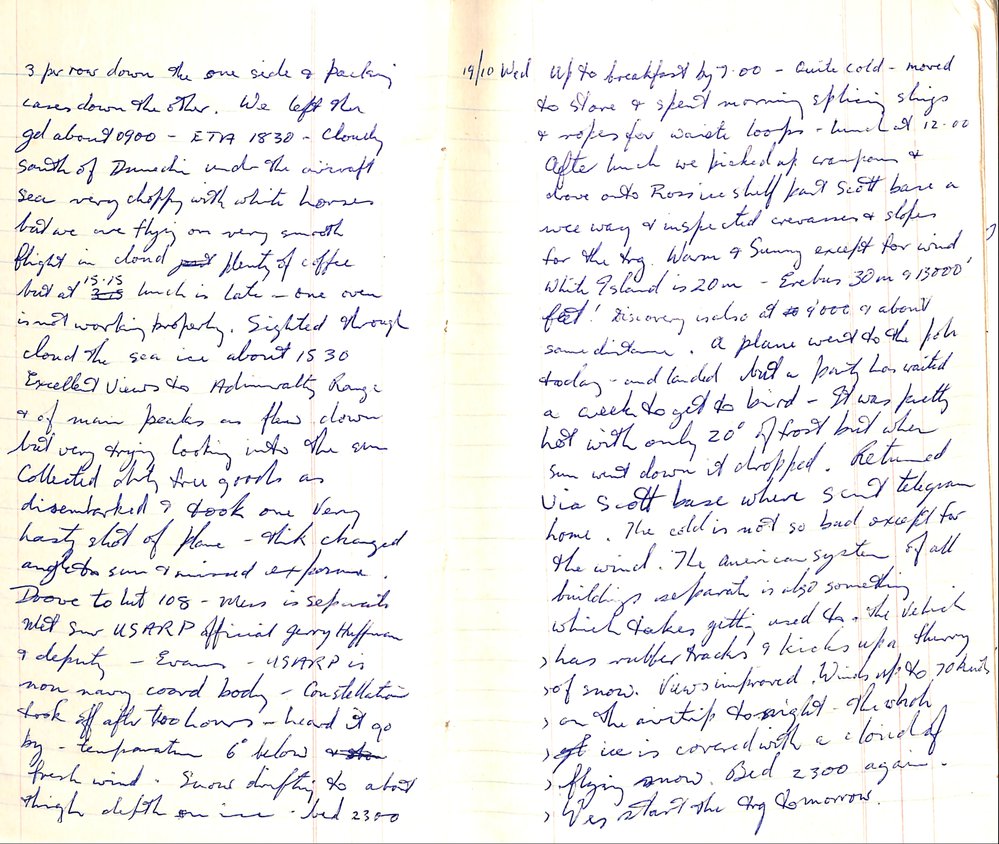 3 per row down the one side & packing
cases down the other. We left the
gd about 0900 - ETA 1830 - Cloudy
south of Dunedin under the aircraft
sea very choppy with white horses
but we are flying on very smooth
flight in cloud plenty of coffee
but at 15.15 lunch is late - one oven
is not working properly. Sighted through
cloud the sea ice about 1530
Excellent views to Admiralty Range
& of main peaks as flew down
but very trying looking into the sun
Collected duty free goods as
disembarked & took one very
hasty shot of plane - think changed
angle to sun & missed exposure.
Drove to hut 108 - Mess is separate
Met Snr USARP official Gerry Huffman
& deputy - Evans - USARP is
non navy coord body - Constellation
took off after two hours - heard it go
by - temperature 6° below
fresh wind. Snow drifting to about
thigh depth on ice - bed 2300
19/10 Wed Up to breakfast by 7.00 - Quite cold - moved
to store & spent morning splicing slings
& ropes for waist loops - lunch at 12.00
After lunch we picked up crampons &
drove onto Ross ice shelf past Scott base a
wee way & inspected crevasses & slopes
for the trg. Warm & Sunny except for wind
White Island is 20m - Erebus 30m & 13000'
feet! Discovery is also at 9000 & about
same distance. A plane went to the pole
today - and landed but a party has waited
a week to get to bird - It was pretty
hot with only 20° of frost but when
sun went down it dropped. Returned
via Scott base where sent telegram
home. The cold is not so bad except for
the wind. The american system of all
buildings separate is also something
which takes getting used to. The vehicle
has rubber tracks & kicks up a flurry
of snow. Views improved. Winds up to 70 knots
on the airstrip tonight - the whole
ice is covered with a cloud of
flying snow. Bed 2300 again.
Yes start the trg tomorrow.